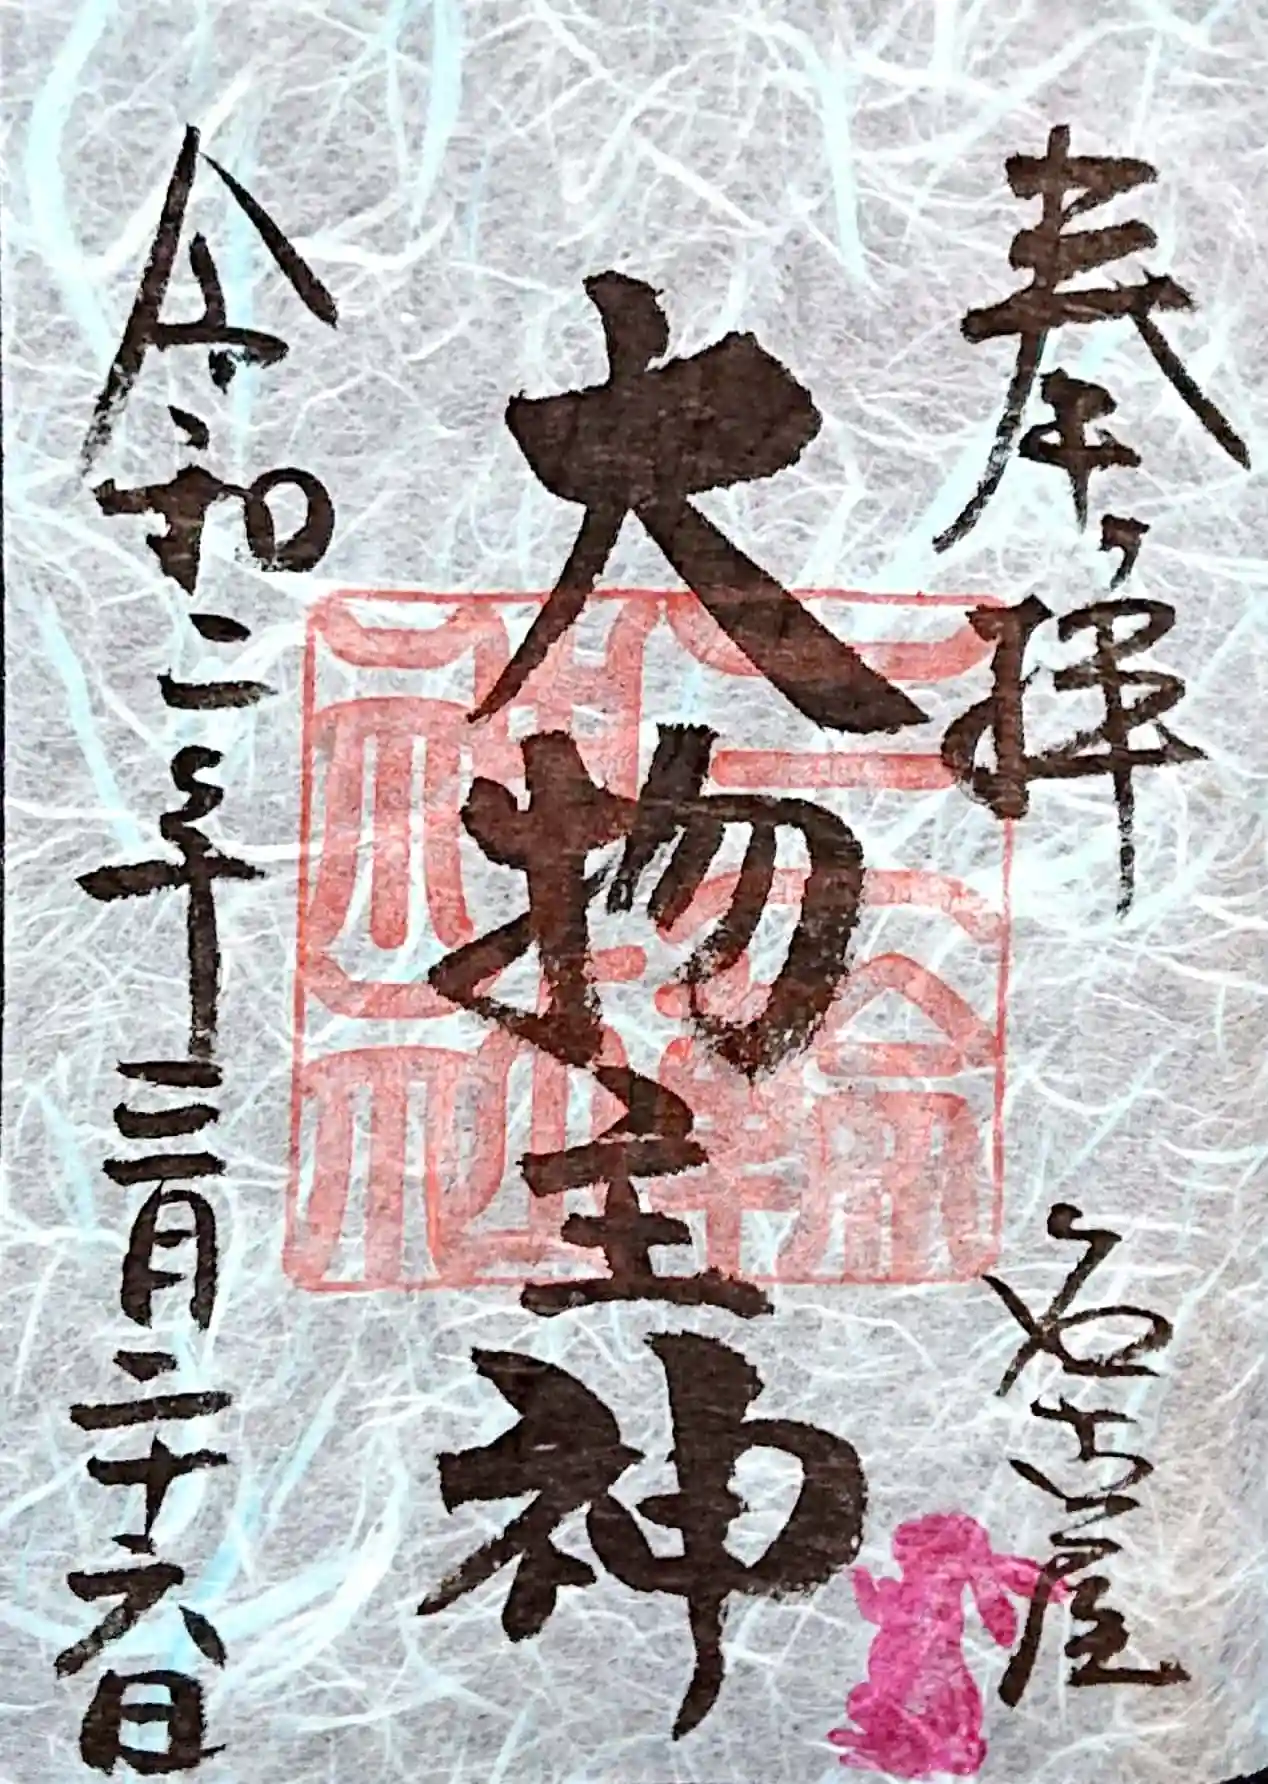 奉拝
名古屋
大物主神
三輪神社
令和二年三月二十六日